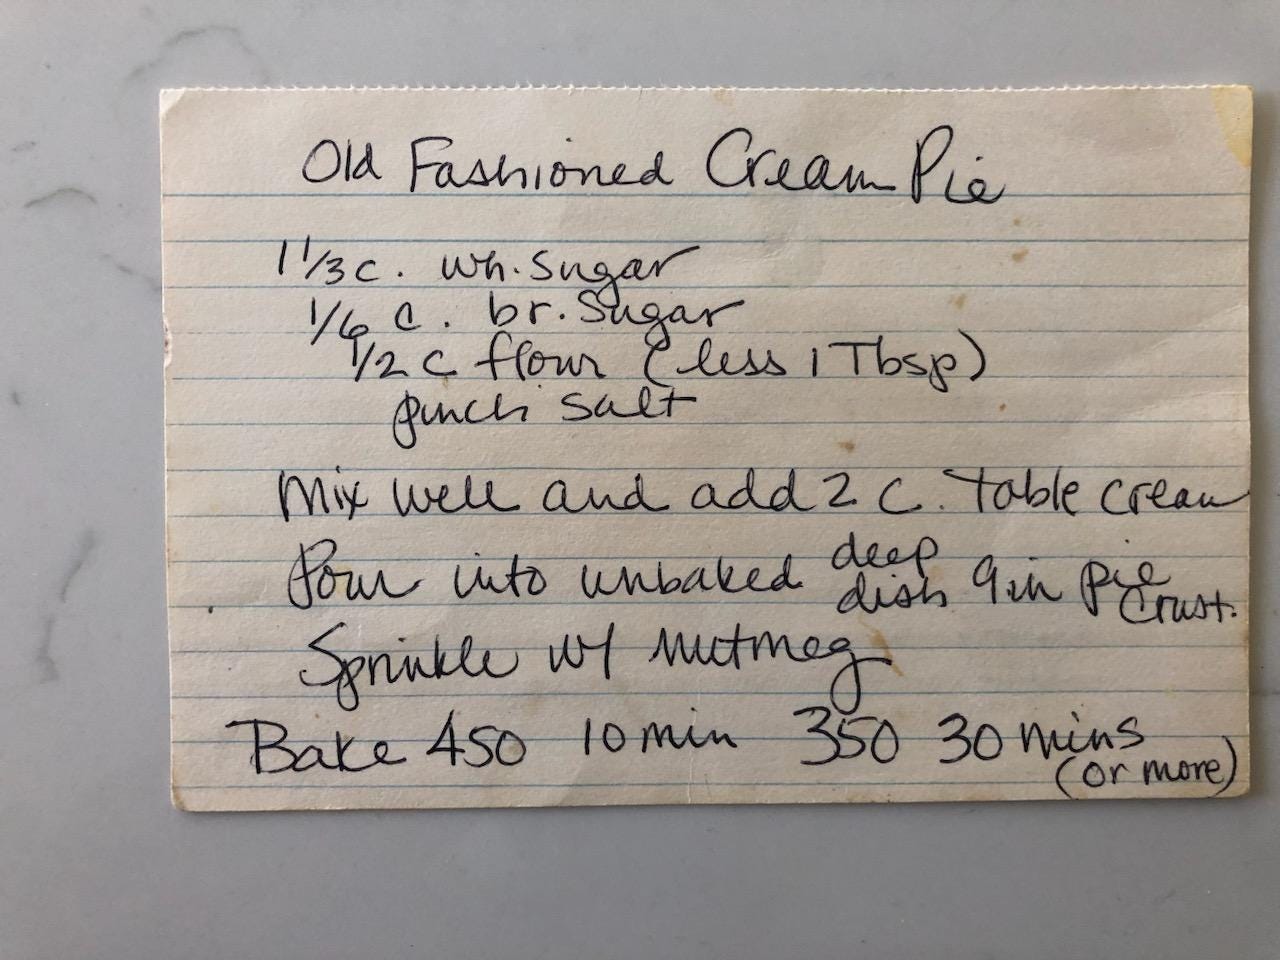 Old Fashioned Cream Pie
1 1/3 c. wh. sugar
1/6 c. br. sugar
1/2 c flour (less 1 Tbsp)
pinch salt
Mix well and add 2 c. table cream
Pour into unbaked deep dish 9 in pie crust.
Sprinkle w/ nutmeg
Bake 450 10 min 350 30 mins
(or more)